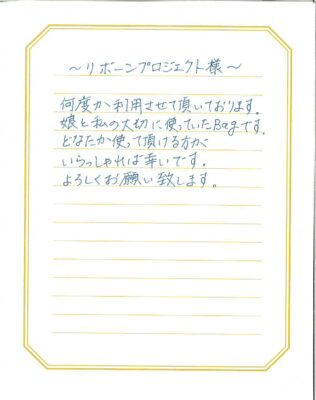 ～リボーンプロジェクト様～
何度か利用させて頂いております。
娘と私の大切に使っていたBagです。
どなたか使って頂ける方が
いらっしゃれば幸いです。
よろしくお願い致します。